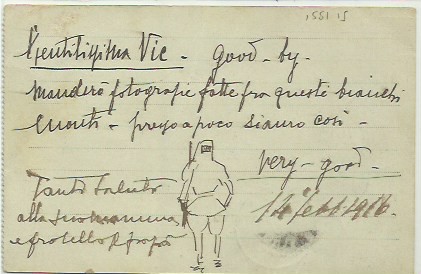 15 1551,
Gentilissima Vic - good-by-
Manderò fotografie fatte fra questi bianchi
monti - press a poco siamo così -
very-good-
Tanti saluti
alla sua mamma,
e fratello e papà
14 febb 1916.